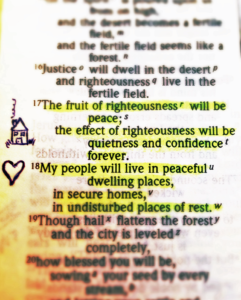 from on high,
and the desert becomes a fertile
field,
and the fertile field seems like a
forest.
16Justice o will dwell in the desert p
and righteousness q live in the
fertile field.
17The fruit of righteousness r will be
peace; s
the effect of righteousness will be
quietness and confidence t
forever.
18My people will live in peaceful u
dwelling places,
in secure homes, v
in undisturbed places of rest. w
19Though hail x flattens the forest y
and the city is leveled z
completely,
20how blessed you will be,
sowing a your seed by every
stream,